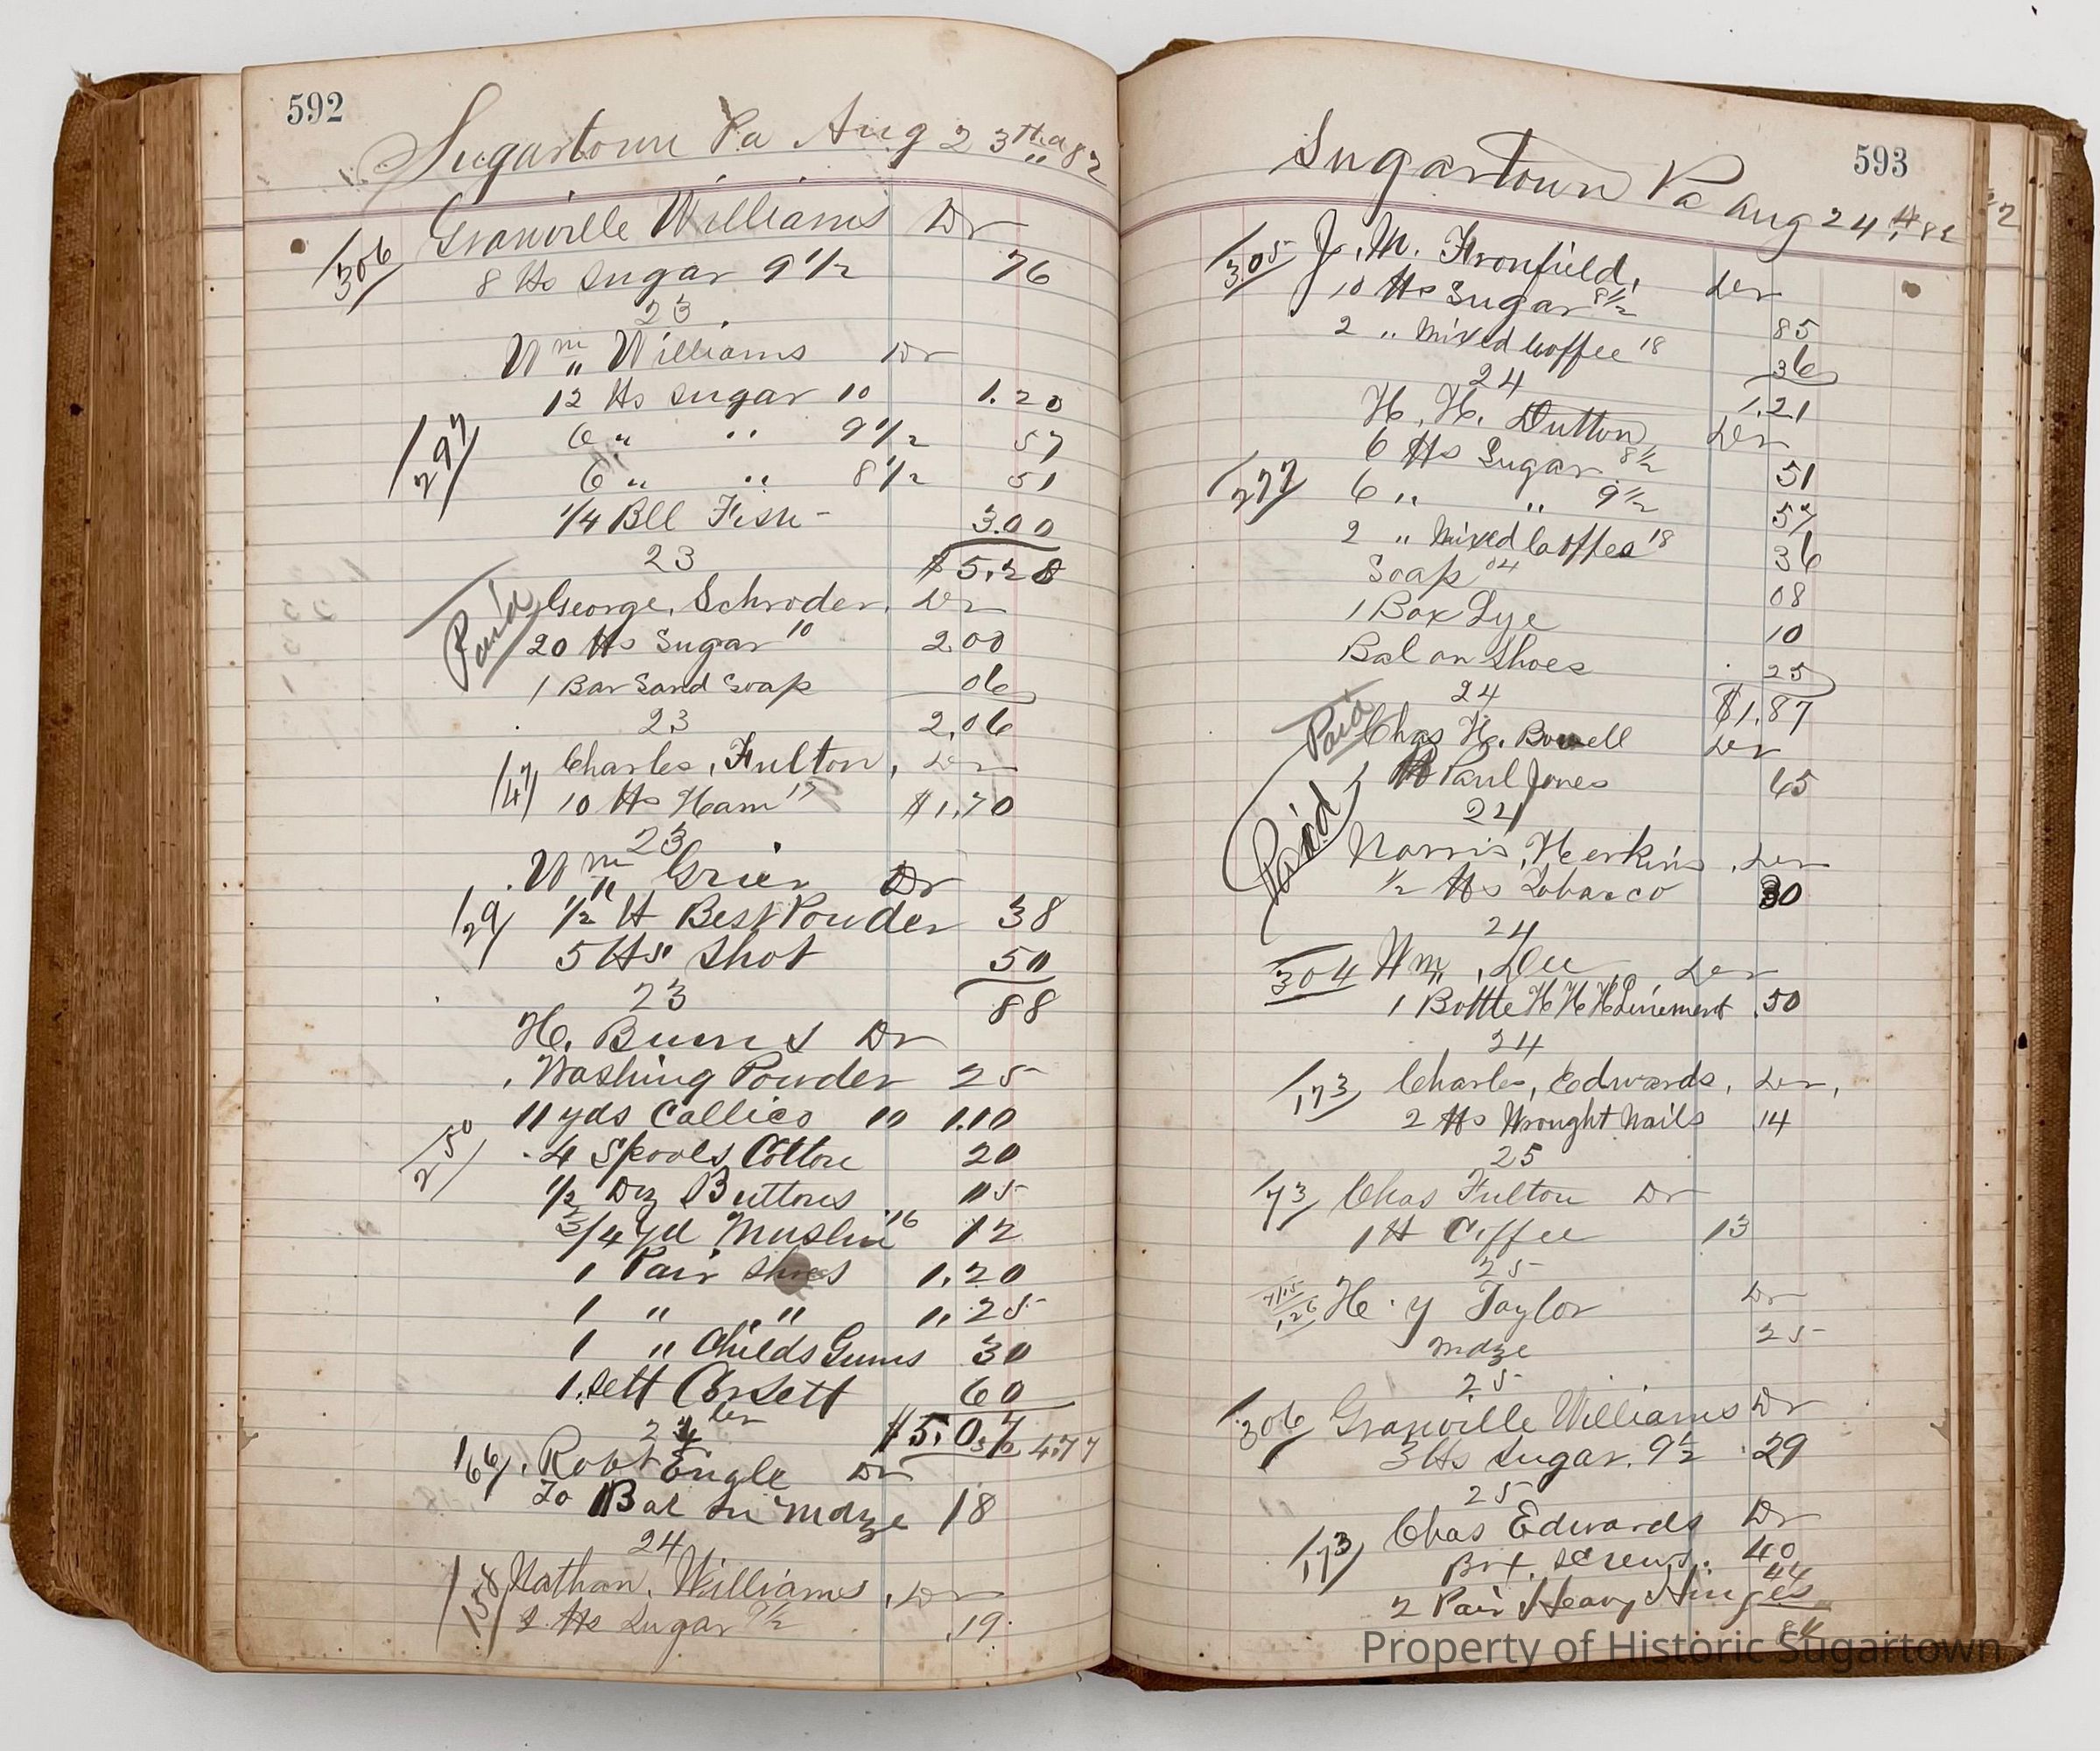 592
Sugartown Pa Aug 23rd 82
306 Granville Williams Dr
8 lbs Sugar 9 1/2 76
23
Wm Williams Dr
12 lbs Sugar 10 1.20
297 6 " " 9 1/2 57
6 " " 8 1/2 51
1/4 Bll Fish - 3.00
23 $5.28
Paid George, Schroder, Dr
20 lbs Sugar 10 2.00
1 Bar Sand Soap 06
23 2.06
Charles, Fulton, Dr
10 lbs Ham 17 $1.70
23
Wm Grier Dr
29 1/2 lb Best Powder 38
5 lbs Shot 50
23 88
H. Burns Dr
Washing Powder 25
11 yds Callico 10 1.10
250 4 Spools Cotton 20
1/2 Dz Buttons 05
3/4 yd Muslin 16 12
1 Pair Shoes 1.20
1 " " 1.25
1 " Childs Gums 30
1 Sett Corsett 60
$5.07 4.77
166 Robt Engle Dr
To Bal on Mdze 18
24
158 Nathan, Williams, Dr
2 lbs Sugar 9 1/2 .19
593
Sugartown Pa Aug 24th 82
305 J. M. Fronfield, Dr
10 lbs Sugar 8 1/2 85
2 " Mixed Coffee 18 36
24 1.21
H. H. Dutton Dr
6 lbs Sugar 8 1/2 51
277 6 " " 9 1/2 57
2 " Mixed Coffee 18 36
Soap 04 08
1 Box Lye 10
Bal on Shoes 25
24 $1.87
Paid Chas H. Bowell Dr
Paul Jones 65
24
Paid Norris, Herkins, Dr
1/2 lbs Tobacco 30
24
304 Wm, Lee Dr
1 Bottle H H H Liniement .50
24
173 Charles, Edwards, Dr,
2 lbs Wrought Nails .14
25
73 Chas Fulton Dr
1 lb Coffee 13
25
H. Y Taylor Dr
Mdze 25
25
306 Granville Williams Dr
3 lbs Sugar. 9 1/2 .29
25
173 Chas Edwards Dr
Box, Screws. 40
2 Pair Heavy Hinges 44
84
Property of Historic Sugartown